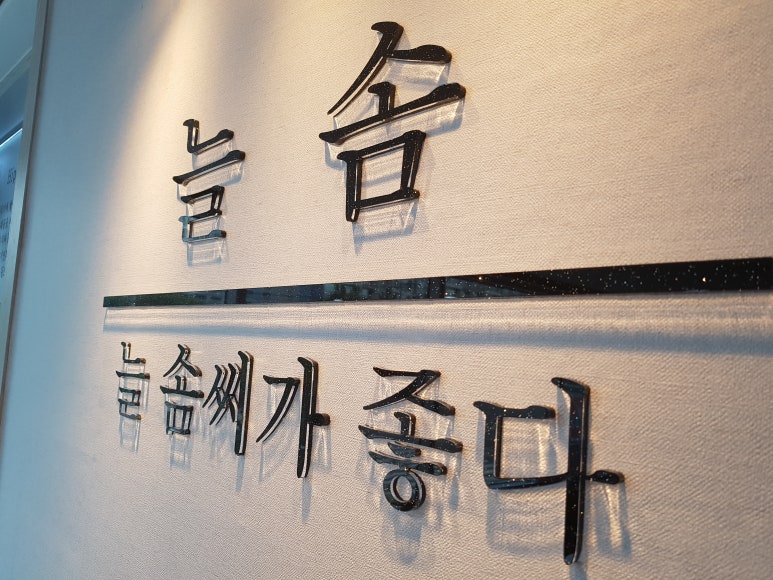 늘 솜
늘 솜씨가 좋다